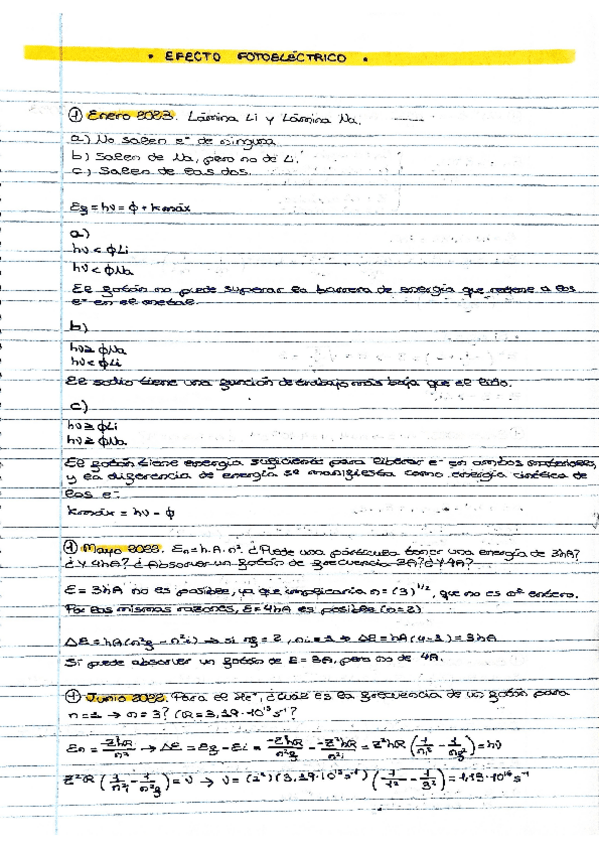 • EFECTO FOTOELÉCTRICO •
① Enero 2023. Lámina Li y Lámina Na.
a) No salen e⁻ de ninguna
b) Salen de Na, pero no de Li.
c) Salen de las dos.
Eg = hν = ϕ + kmáx
a)
hν < ϕLi
hν < ϕNa
El fotón no puede superar la barrera de energía que retiene a los
e⁻ en el metal.
b)
hν ≥ ϕNa
hν < ϕLi
El sodio tiene una función de trabajo más baja que el litio.
c)
hν ≥ ϕLi
hν ≥ ϕNa.
El fotón tiene energía suficiente para liberar e⁻ en ambos materiales,
y la diferencia de energía se manifiesta como energía cinética de
los e⁻.
kmáx = hν - ϕ
① Mayo 2023. En = h·A·n². ¿Puede una partícula tener una energía de 3hA?
¿Y 4hA? ¿Absorver un fotón de frecuencia 3A? ¿Y 4A?
E = 3hA no es posible, ya que implicaría n = (3)^1/2, que no es nº entero.
Por las mismas razones, E = 4hA es posible (n=2)
ΔE = hA(n²f - n²i) → si nf = 2, ni = 1 → ΔE = hA(4-1) = 3hA
Si puede absorver un fotón de E = 3A, pero no de 4A.
① Junio 2022. Para el He⁺, ¿cuál es la frecuencia de un fotón para
n=1 → n=3? (R = 3,29·10¹⁵ s⁻¹?
En = -Z²hR/n² → ΔE = Ef - Ei = -Z²hR/n²f - -Z²hR/n²i = Z²hR (1/n²i - 1/n²f) = hν
Z²R (1/n²i - 1/n²f) = ν → ν = (2²)(3,29·10¹⁵ s⁻¹) (1/1² - 1/3²) = 1,19·10¹⁶ s⁻¹